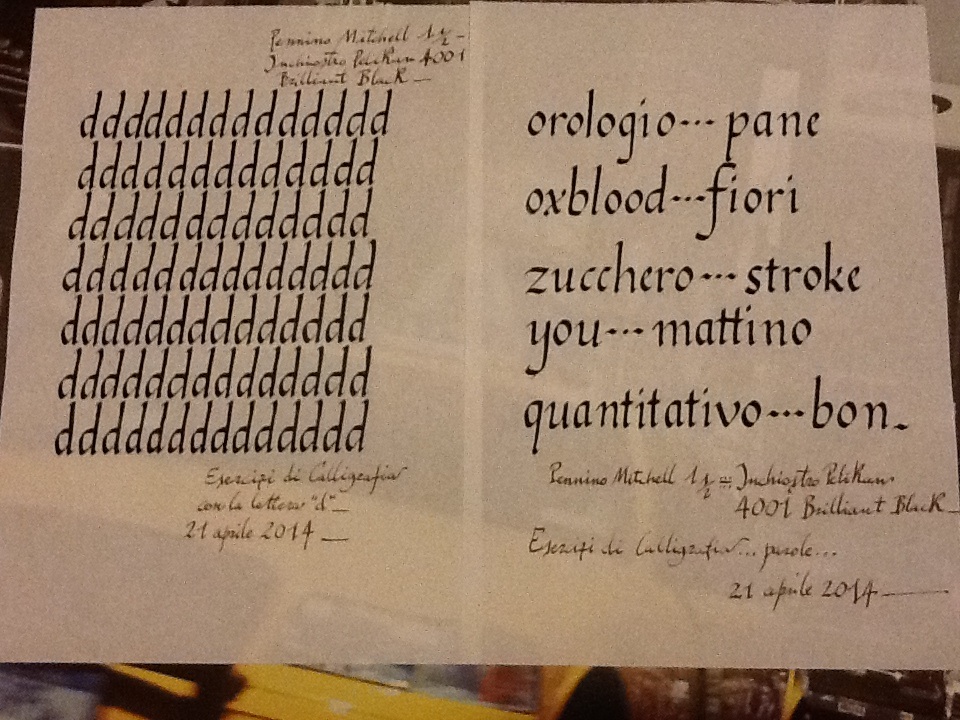 Pennino Mitchell 1 ½ –
Inchiostro Pelikan 4001
Brilliant Black —
dddddddddddddd
ddddddddddddd
ddddddddddddd
dddddddddddddd
ddddddddddddd
dddddddddddddd
dddddddddddddd
Esercizi di Calligrafia
con la lettera "d" —
21 aprile 2014 —
orologio··· pane
oxblood···fiori
zucchero··· stroke
you··· mattino
quantitativo···bon.
Pennino Mitchell 1 ½ = Inchiostro Pelikan
4001 Brilliant Black —
Esercizi di Calligrafia... parole...
21 aprile 2014 —